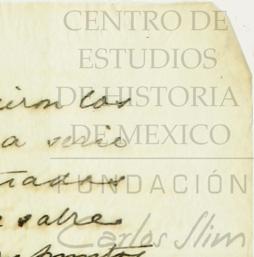 CENTRO DE
ESTUDIOS
DE HISTORIA
DE MEXICO
FUNDACIÓN
Carlos Slim
ieron los
a serie
tados
e sobre
puntos